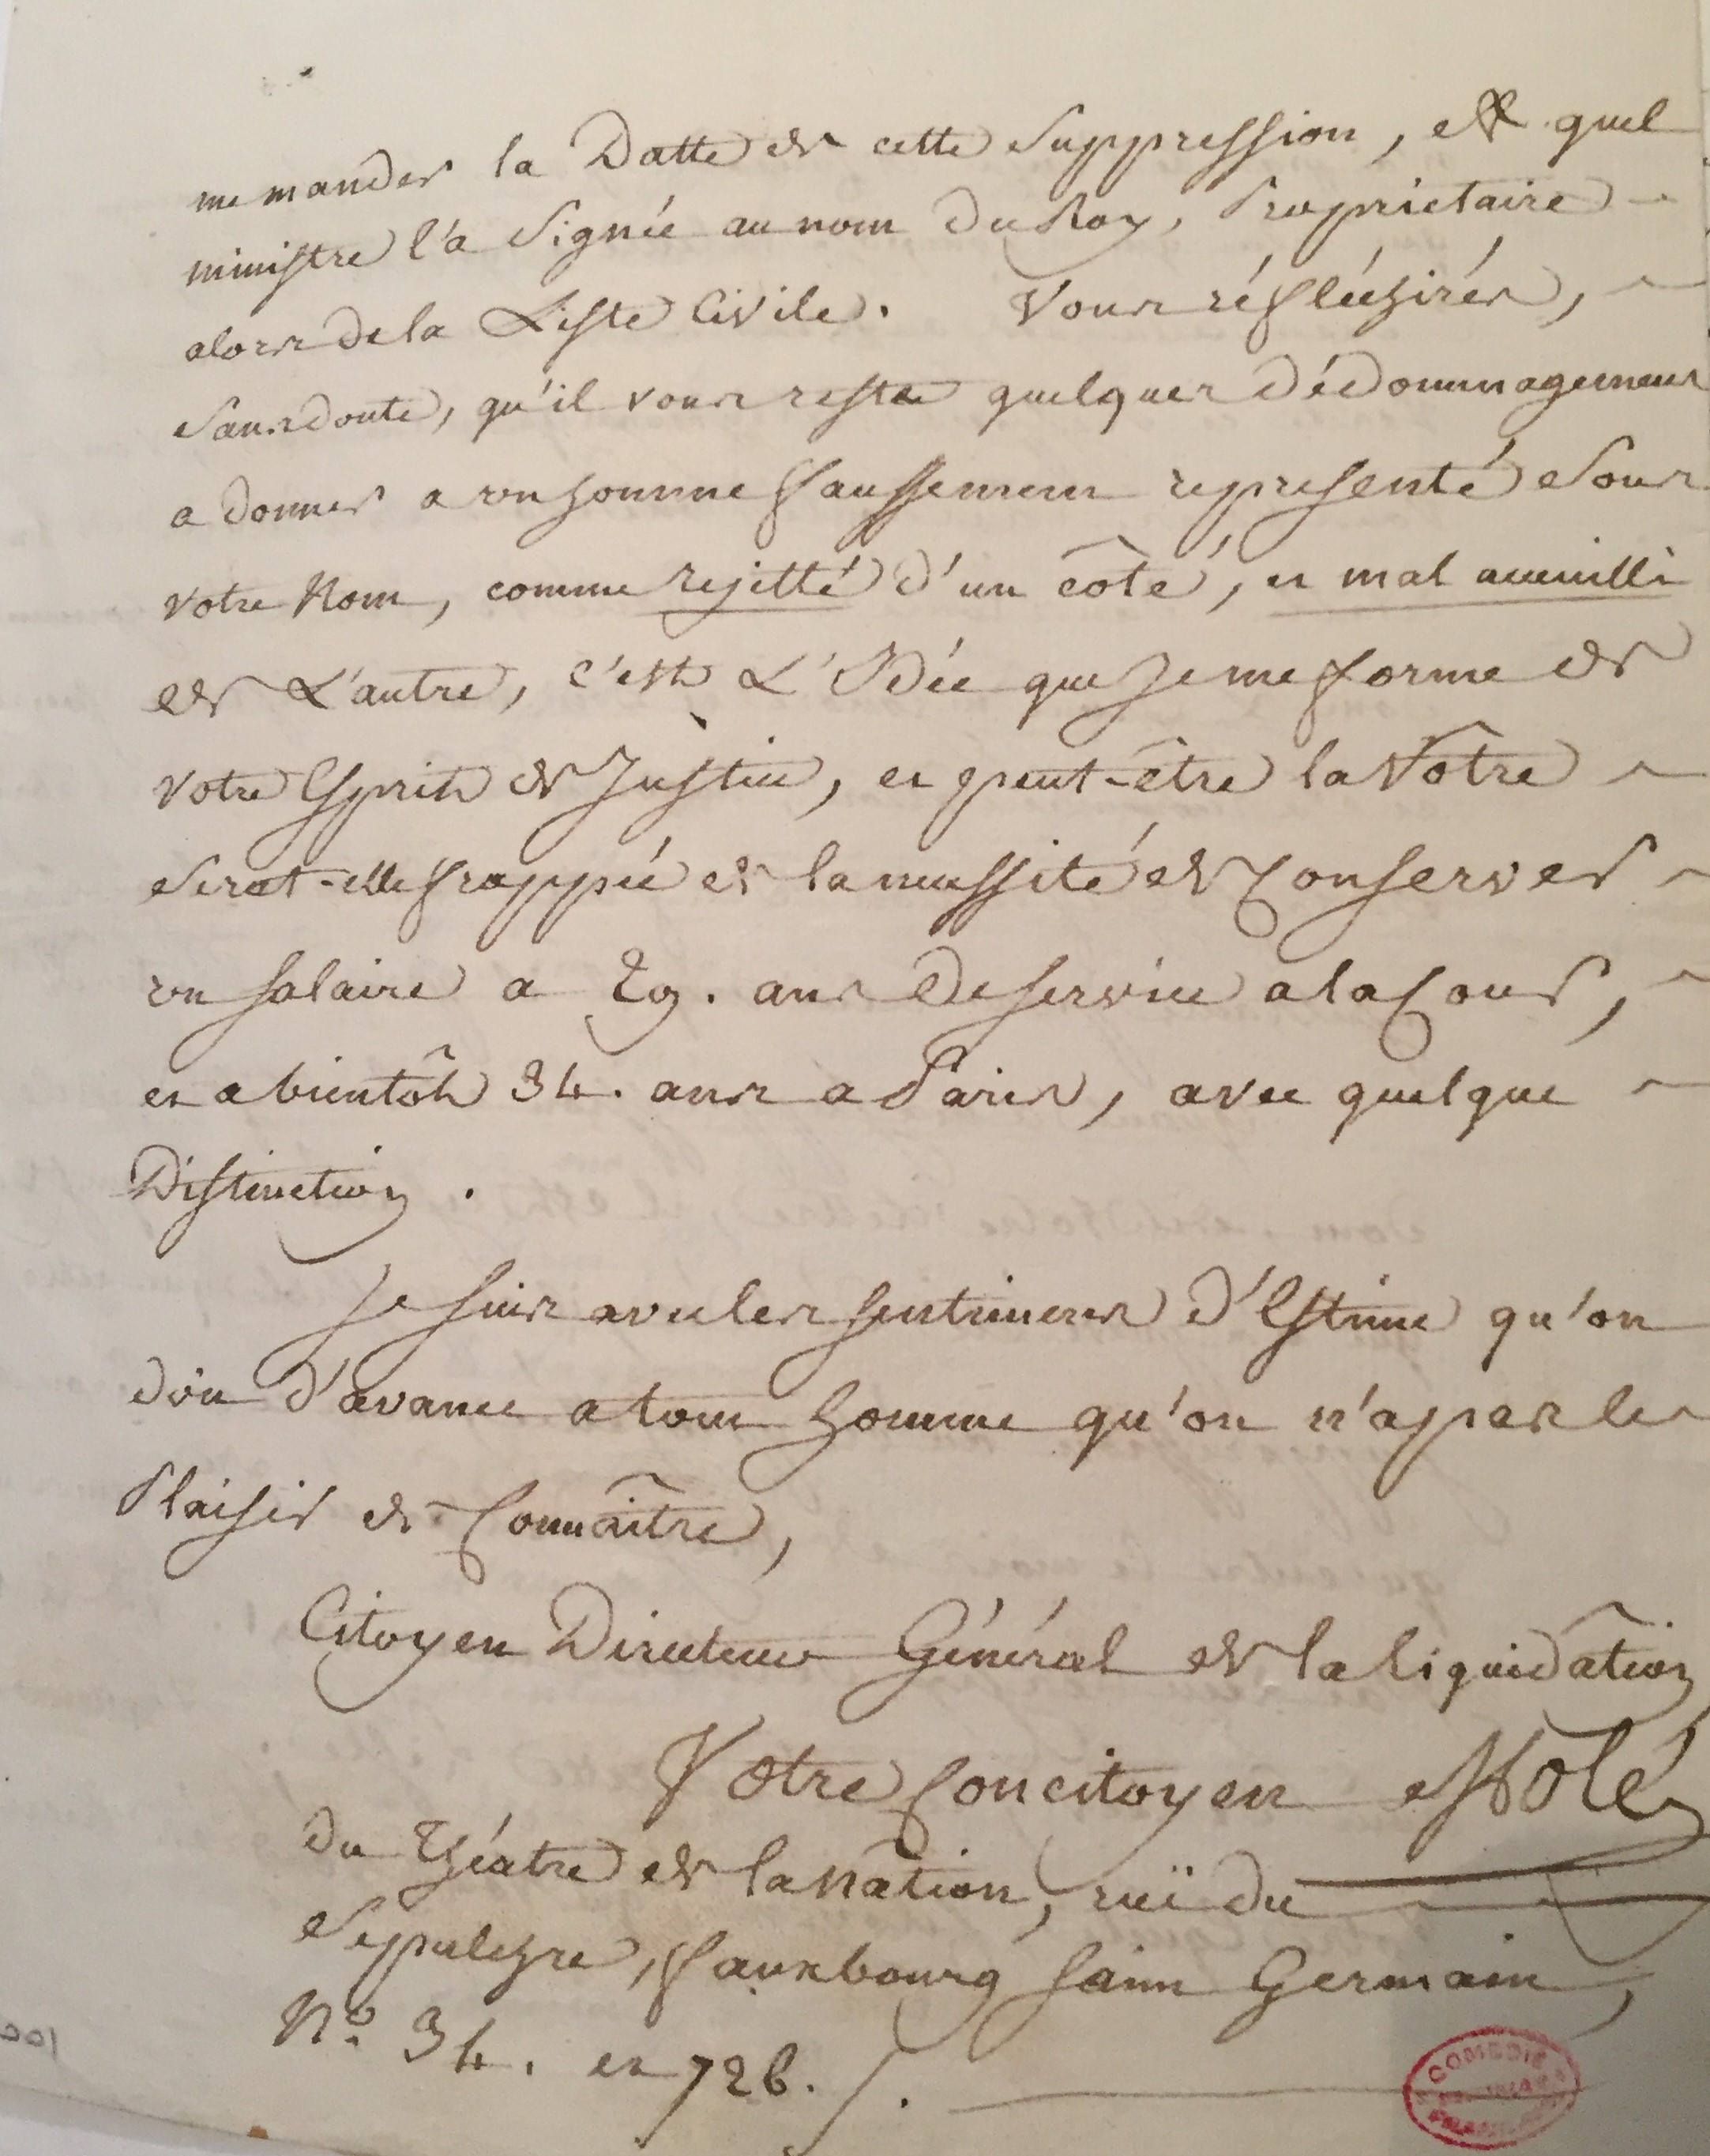 me mander la Datte de cette Suppression, et quel
ministre l'a Signée au nom du Roy, Propriétaire
alors de la Liste Civile. Vous réfléchirés,
Sans doute, qu'il vous reste quelques dédommagemens
a donner a un homme faussement representé Sous
votre Nom, comme rejetté d'un côté, et mal accueilli
de L'autre, c'est L'Idée que Je me forme de
votre Esprit de Justice, et peut-être la Vôtre
Serat-elle frappée de la necessité de Conserver
un salaire a 29. ans de service a la Cour,
et a bientôt 34. ans a Paris, avec quelque
Distinction.
Je suis avec les sentimens d'Estime qu'on
doit d'avance a tout homme qu'on n'a pas le
Plaisir de Connaître,
Citoyen Directeur Général de la Liquidâtion
Votre Concitoyen Molé
du Théatre de la Nâtion, ruë du
Sepulchre, fauxbourg saint Germain,
N.º 34. et 726.
COMEDIE